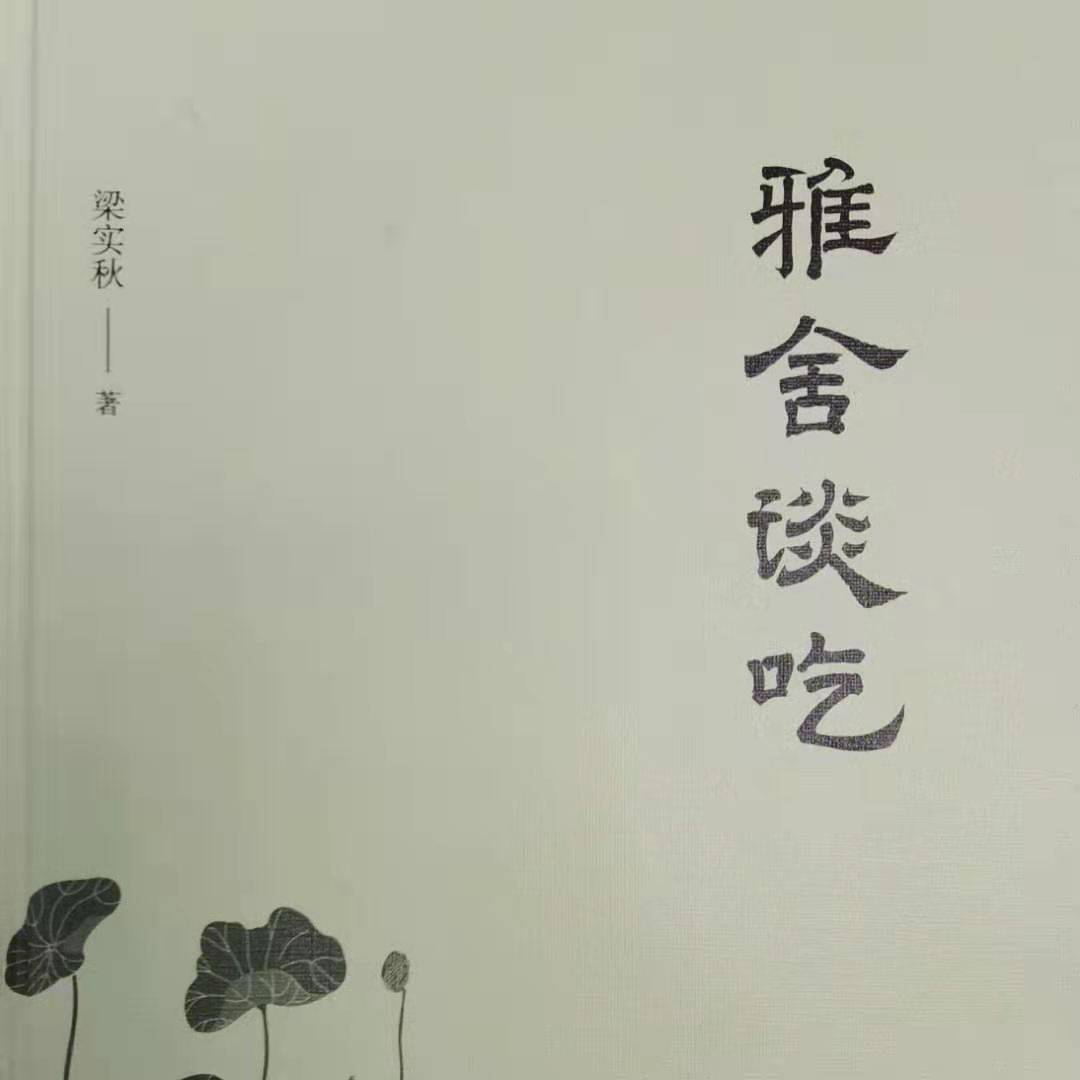 雅舍谈吃
梁实秋——著